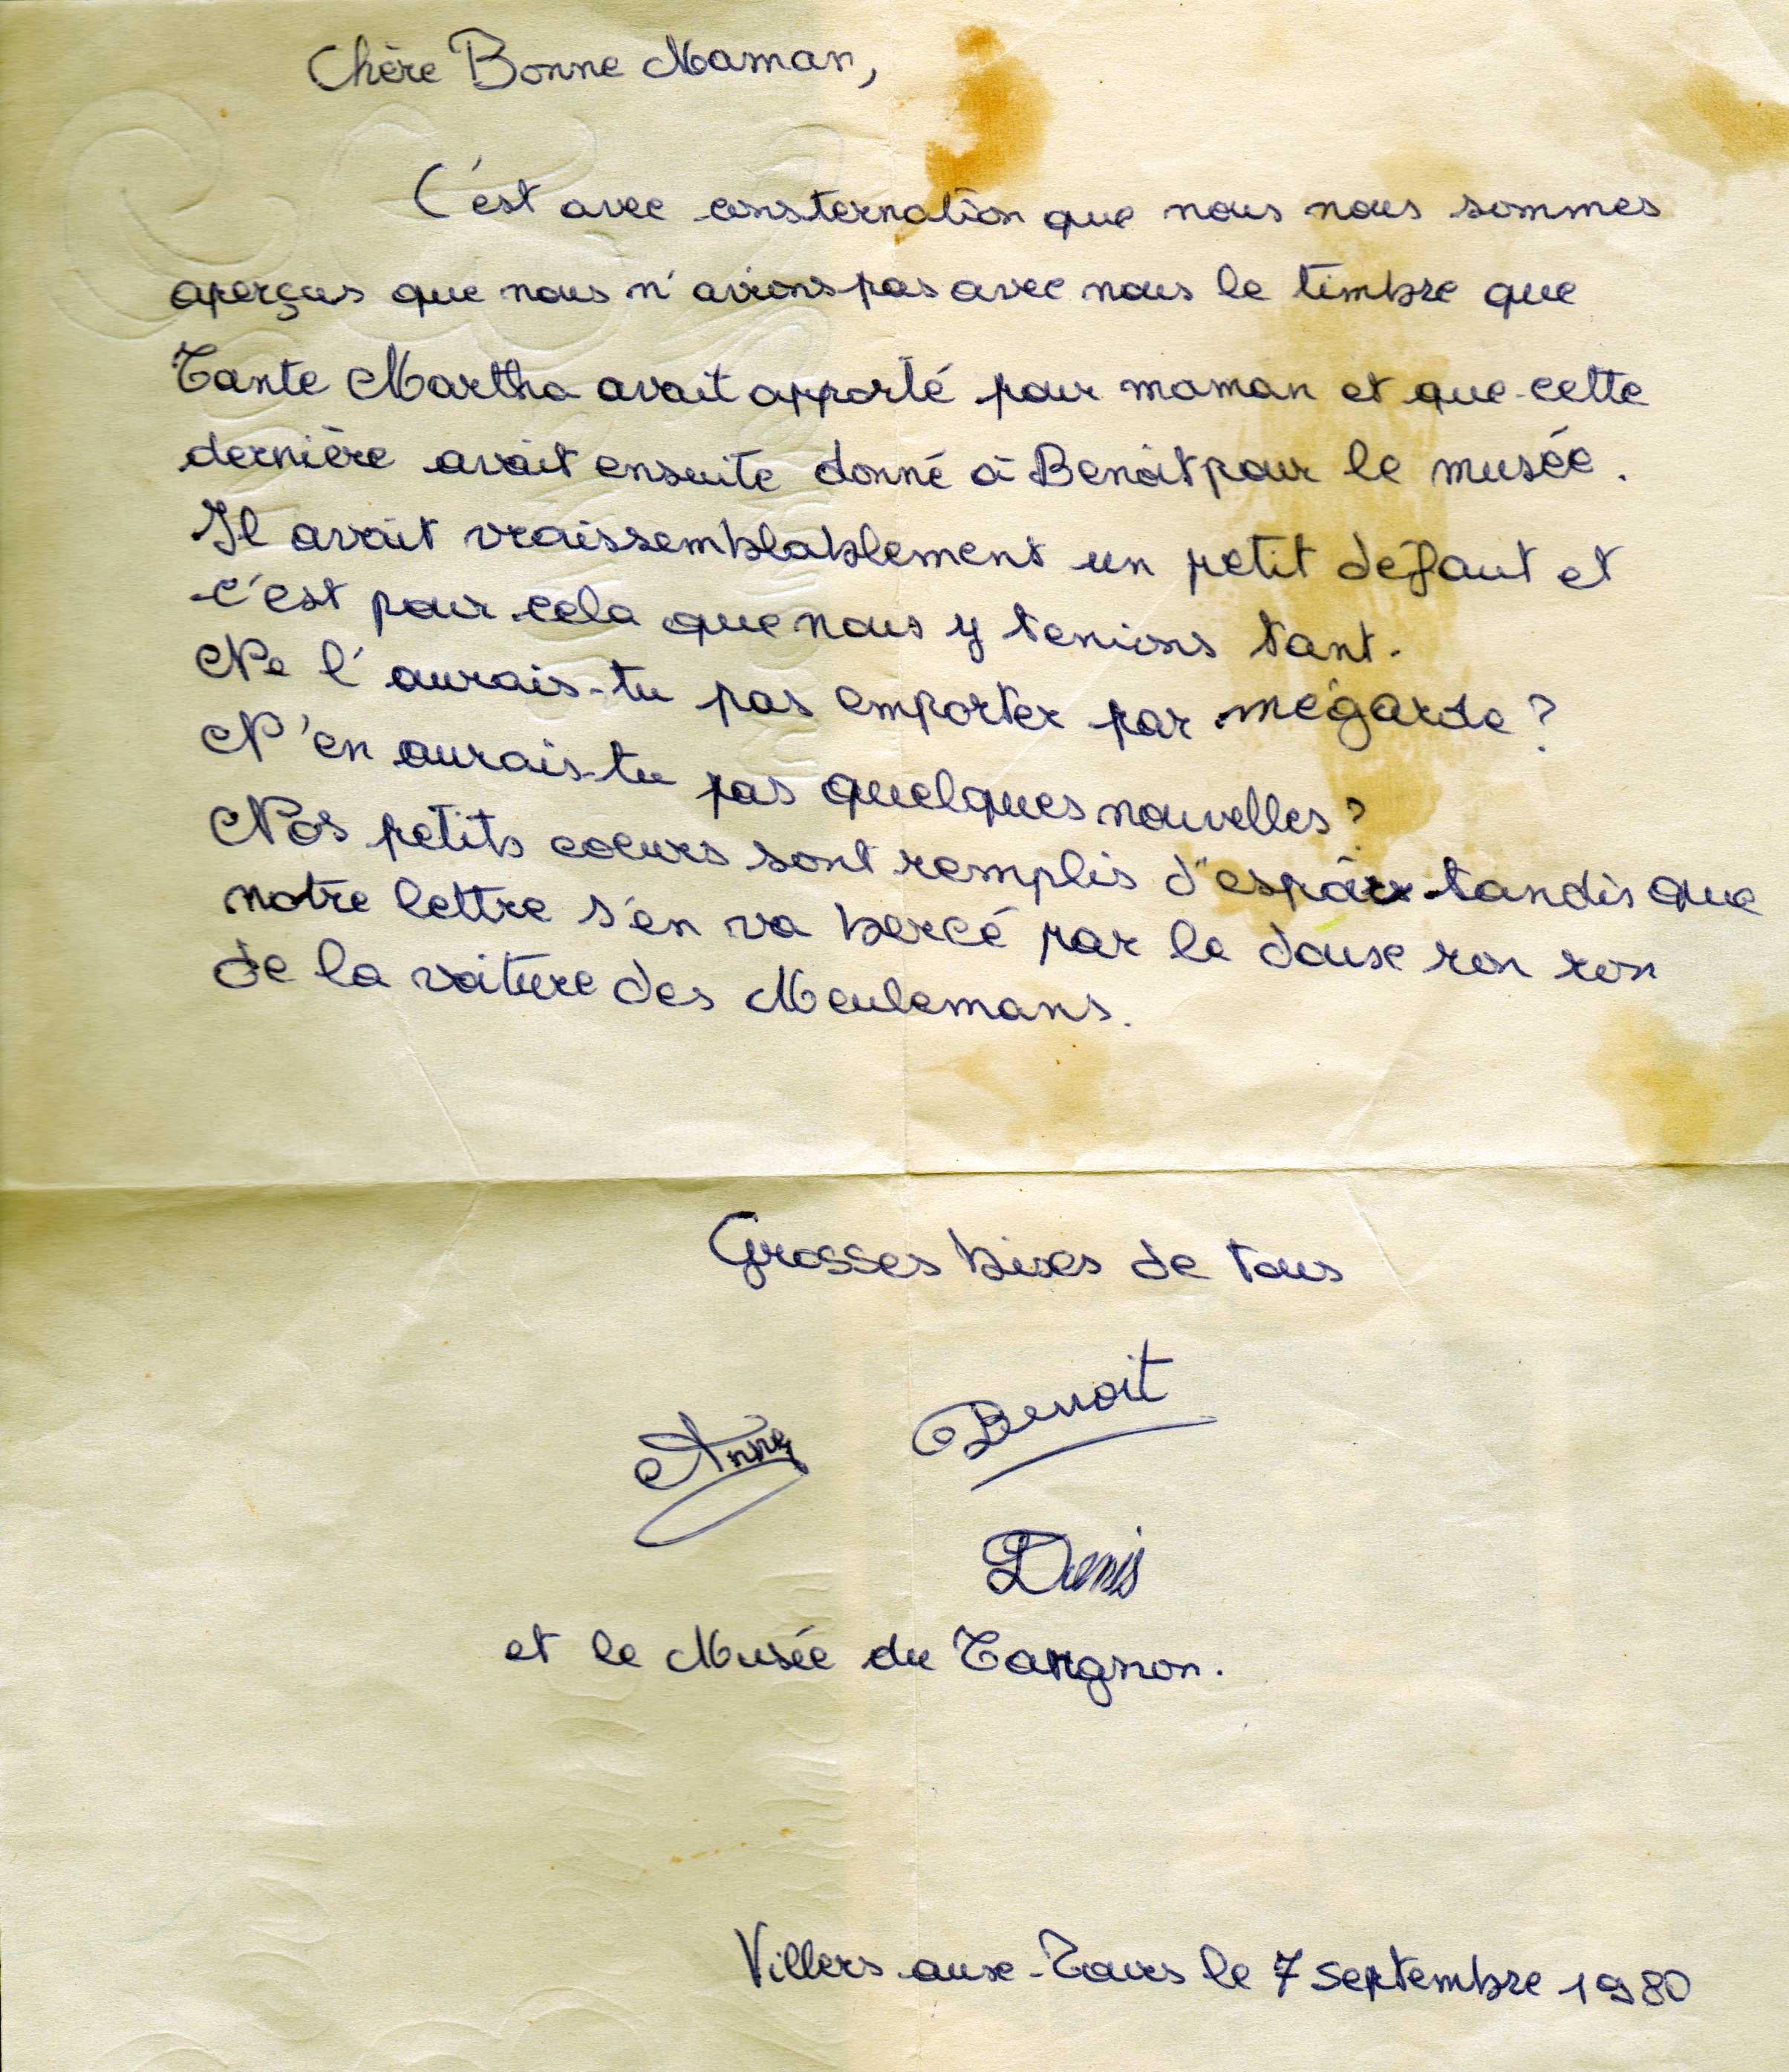 Chère Bonne Maman,
C'est avec consternation que nous nous sommes
aperçus que nous n'avions pas avec nous le timbre que
Tante Martha avait apporté pour maman et que cette
dernière avait ensuite donné à Benoît pour le musée.
Il avait vraissemblablement un petit défaut et
c'est pour cela que nous y tenions tant.
Ne l'aurais-tu pas emporter par mégarde ?
N'en aurais-tu pas quelques nouvelles ?
Nos petits coeurs sont remplis d'espoir tandis que
notre lettre s'en va bercé par le doux ron ron
de la voiture des Meulemans.
Grosses bises de tous
Anne Benoit
Denis
et le Musée du Targnon.
Villers-aux-Tours le 7 septembre 1980